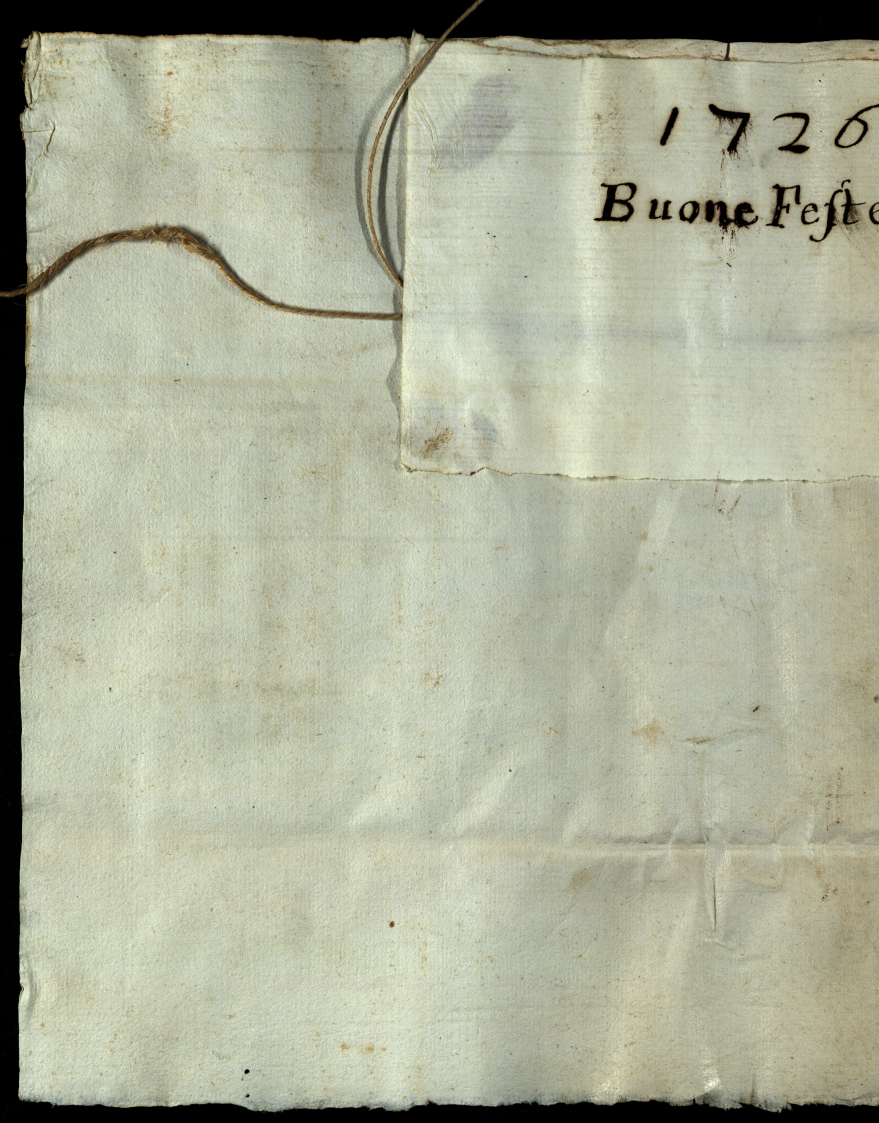 1726
Buone Feſte